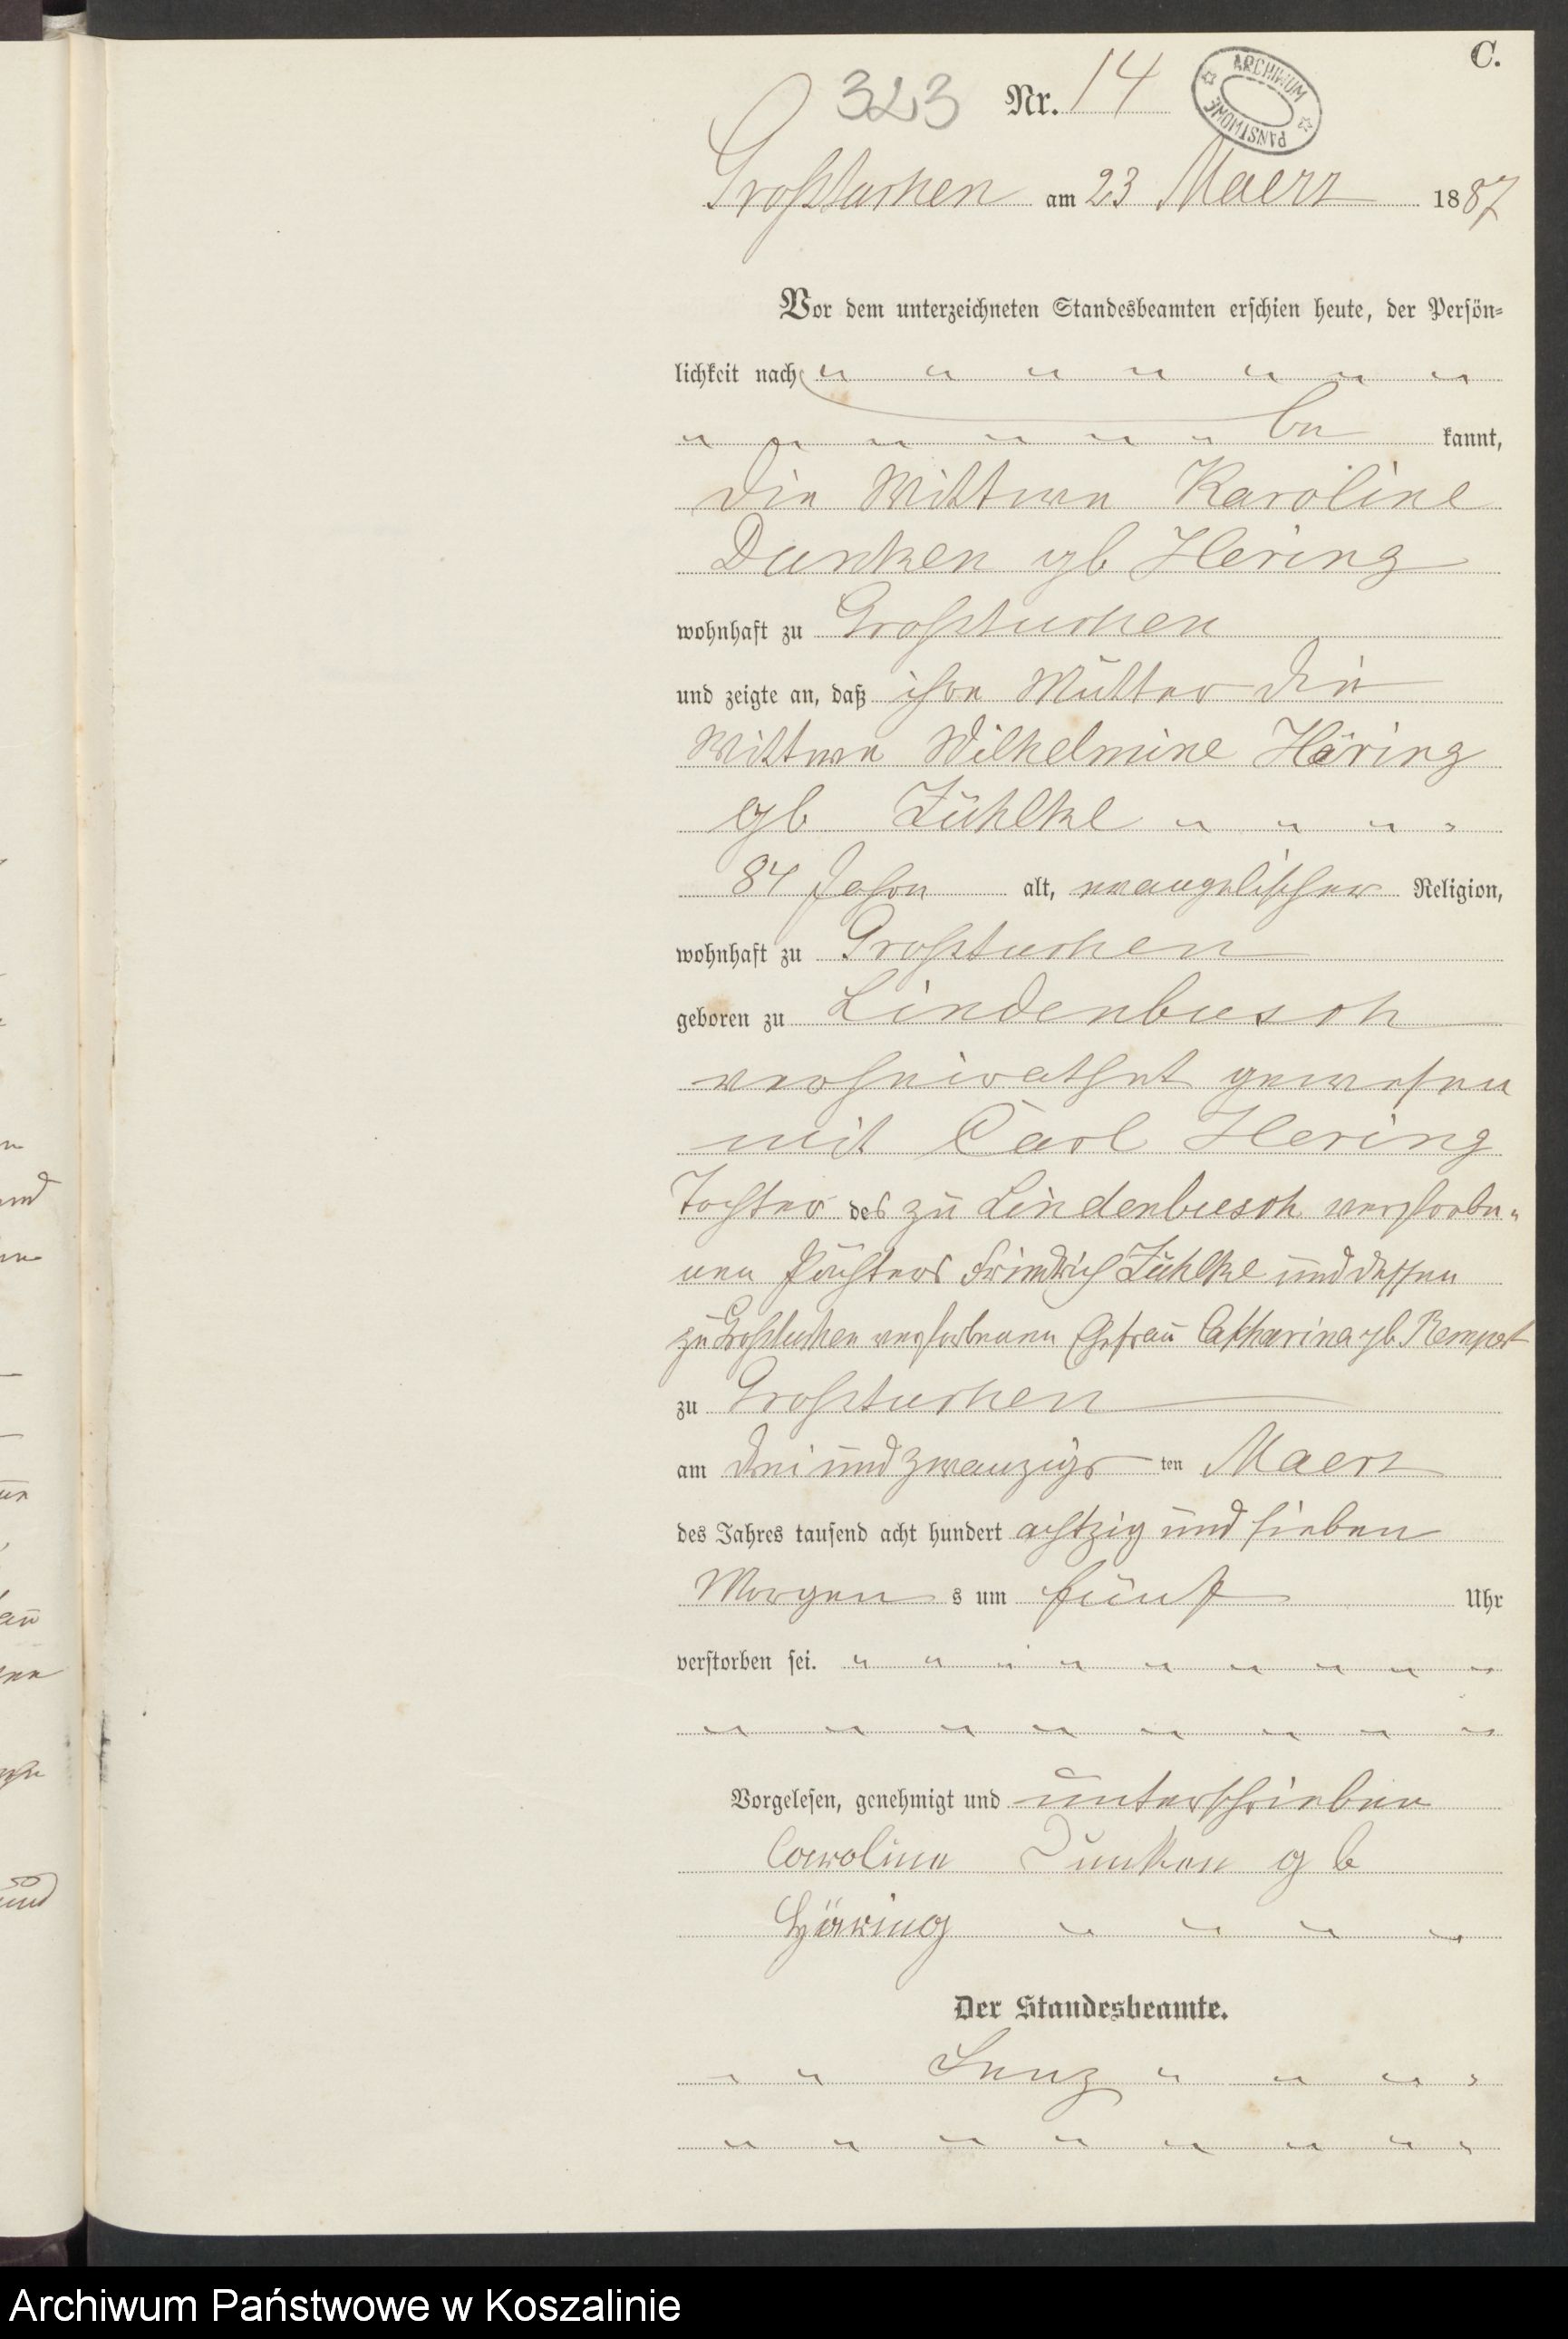 C.
323 Nr. 14
ARCHIWUM PAŃSTWOWE
Großtuchen am 23 Maerz 1887
Vor dem unterzeichneten Standesbeamten erschien heute, der Persön-
lichkeit nach
be kannt,
die Wittwe Karoline
Dunken gb Hering
wohnhaft zu Großtuchen
und zeigte an, daß ihre Mutter die
Wittwe Wilhelmine Häring
gb Zühlke
84 Jahre alt, evangelischer Religion,
wohnhaft zu Großtuchen
geboren zu Lindenbusch
verheirathet gewesen
mit Carl Hering
Tochter des zu Lindenbusch verstorbe-
nen Pächters Friedrich Zühlke und dessen
zu Großtuchen verstorbenen Ehefrau Catharina gb
zu Großtuchen
am drei und zwanzigs ten Maerz
des Jahres tausend acht hundert achtzig und sieben
Morgen s um fünf Uhr
verstorben sei.
Vorgelesen, genehmigt und unterschrieben
Caroline Dunken g b
Häring
Der Standesbeamte.
Lenz
Archiwum Państwowe w Koszalinie